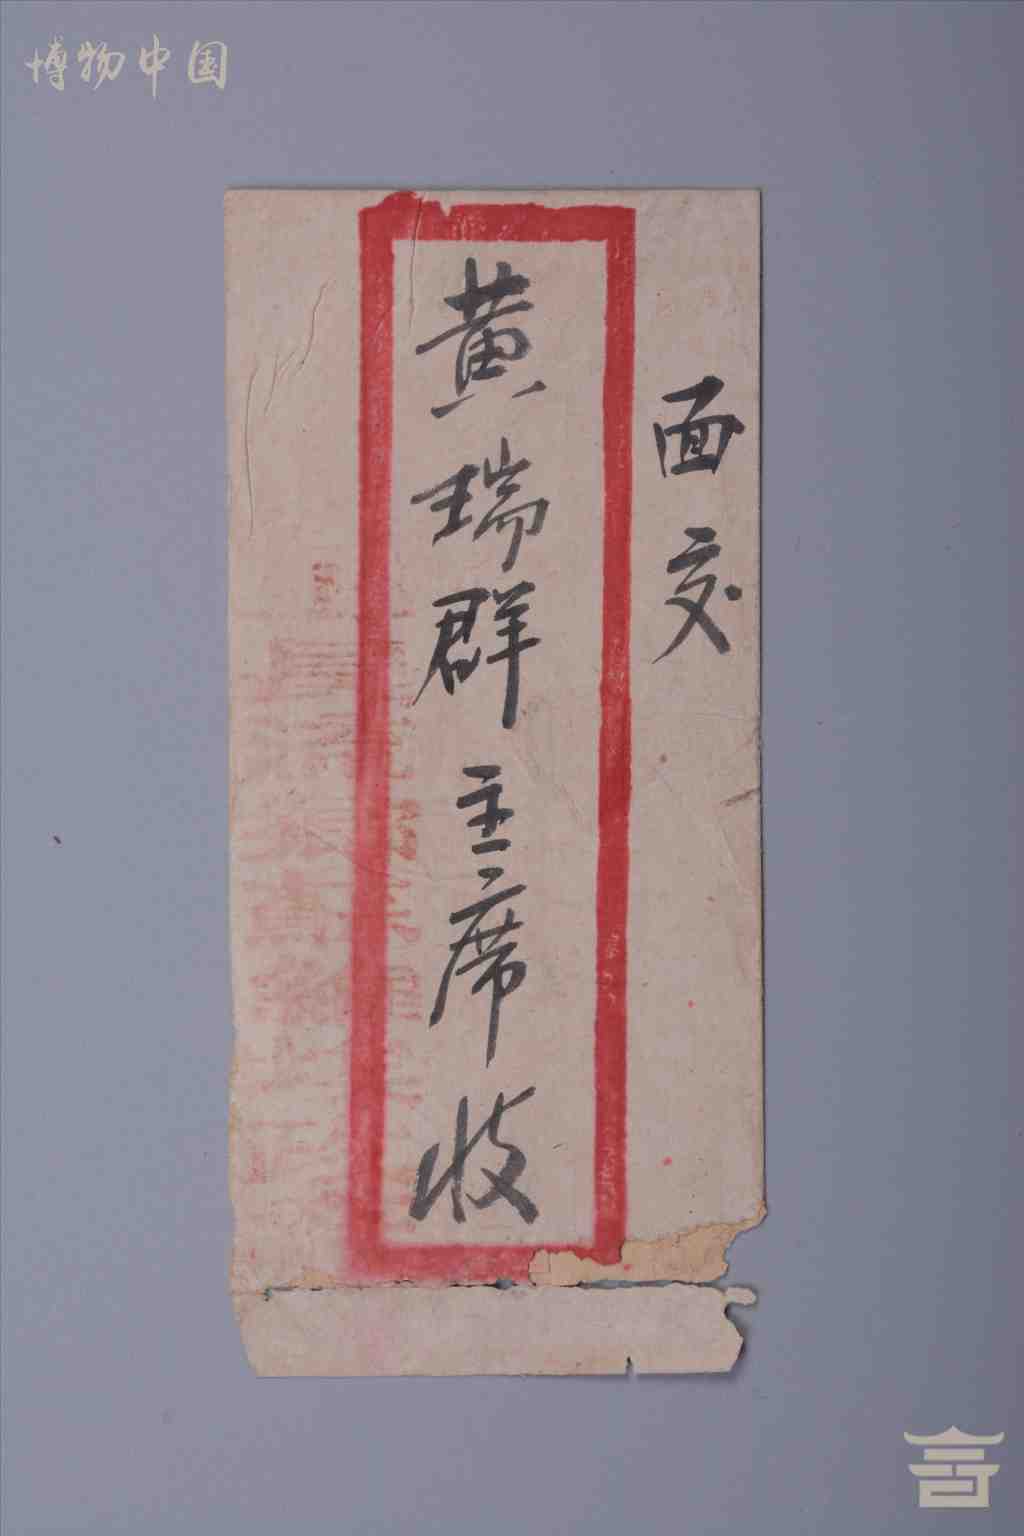 博物中国
面交
黄瑞群主席收